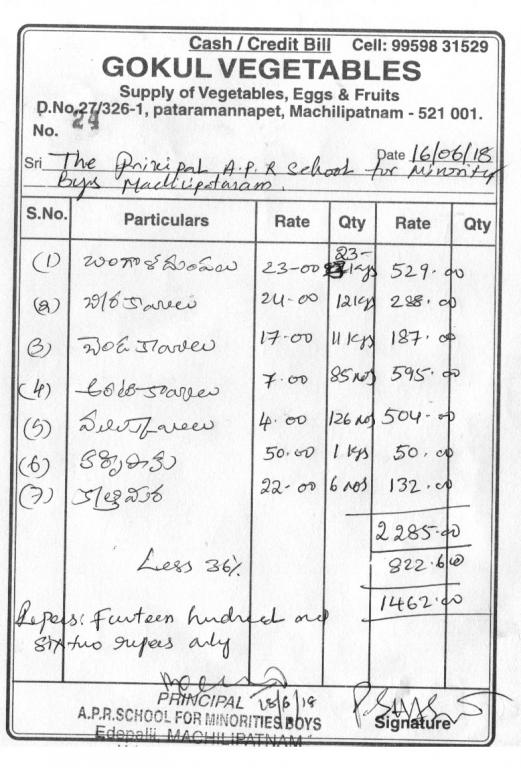 Cash / Credit Bill Cell: 99598 31529
GOKUL VEGETABLES
Supply of Vegetables, Eggs & Fruits
D.No.27/326-1, pataramannapet, Machilipatnam - 521 001.
No. 24
Date 16/06/18
Sri The Principal A.P.R School for Minority
Boys Machilipatanam.
S.No. Particulars Rate Qty Rate Qty
(1) బంగాళదుంపలు 23-00 23- Kgs 529.00
(2) బీరకాయలు 24-00 12 Kgs 288.00
(3) బెండకాయలు 17.00 11 Kgs 187.00
(4) అరటికాయలు 7.00 85 nos 595.00
(5) 4.00 126 nos 504-00
(6) కరివేపాకు 50.00 1 Kgs 50.00
(7) 22-00 6 nos 132.00
2285.00
Less 36% 822.60
1462.00
Rupees: Fourteen hundred and
sixty two rupees only
PRINCIPAL 18/6/18
A.P.R.SCHOOL FOR MINORITIES BOYS
Signature
Edepalli, MACHILIPATNAM